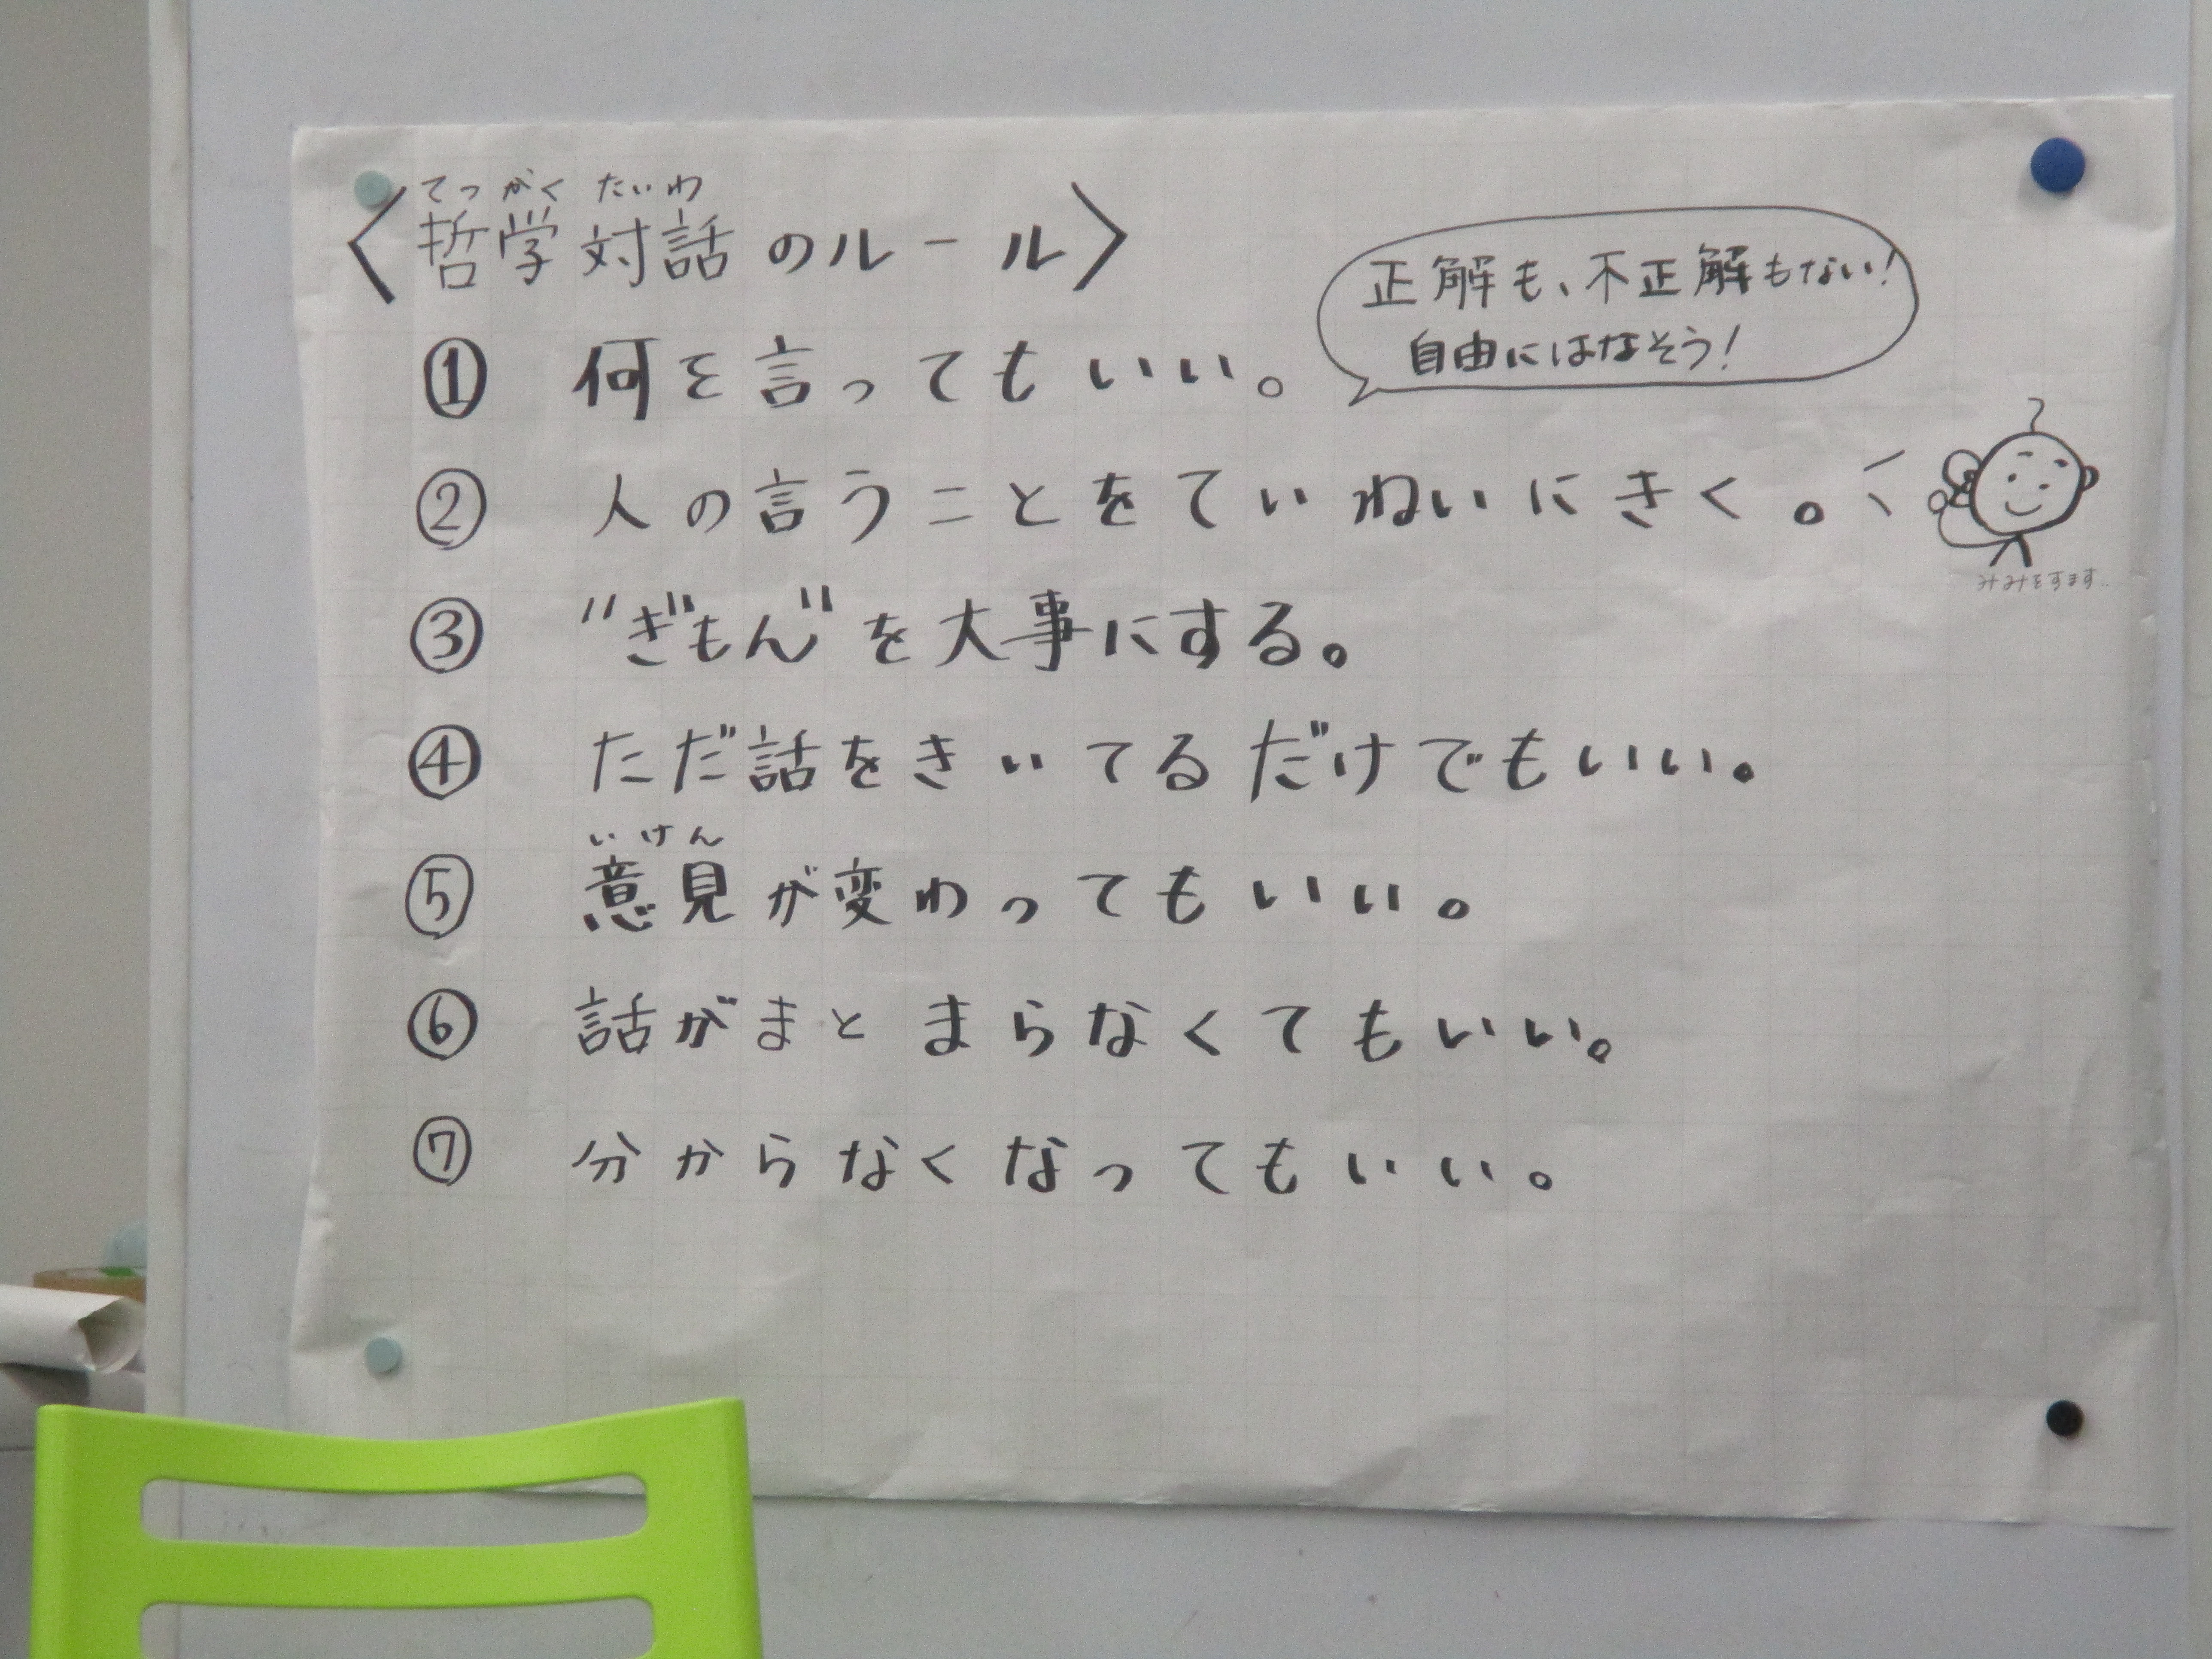 てつがくたいわ
〈哲学対話のルール〉
正解も、不正解もない!
自由にはなそう!
① 何を言ってもいい。
② 人の言うことをていねいにきく。
みみをすます..
③ "ぎもん"を大事にする。
④ ただ話をきいてるだけでもいい。
いけん
⑤ 意見が変わってもいい。
⑥ 話がまとまらなくてもいい。
⑦ 分からなくなってもいい。